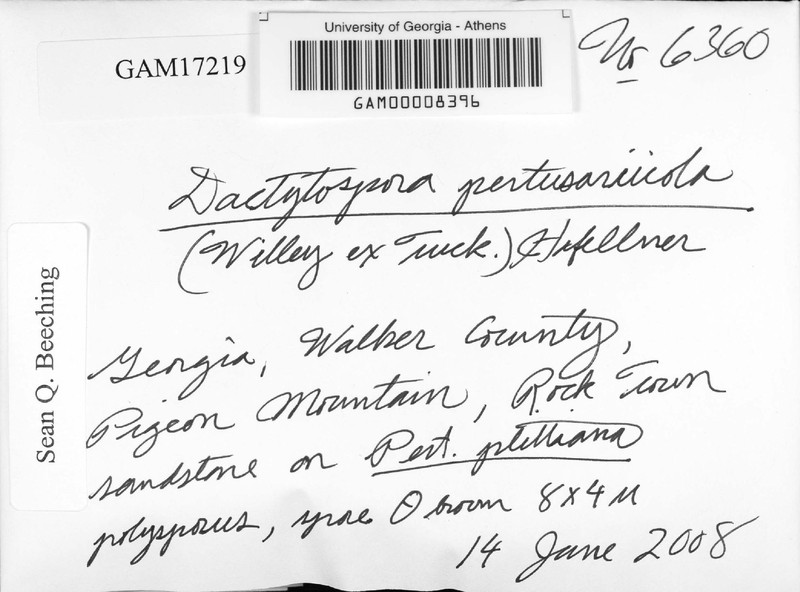 University of Georgia - Athens
GAM00008396
GAM17219
Nr 6360
Dactytospora pertusariicola
(Willey ex Tuck.) Hafellner
Sean Q. Beeching
Georgia, Walker County,
Pigeon Mountain, Rock Town
sandstone on Pert. plittiana
polysporus, spore Θ brown 8x4 µ
14 June 2008